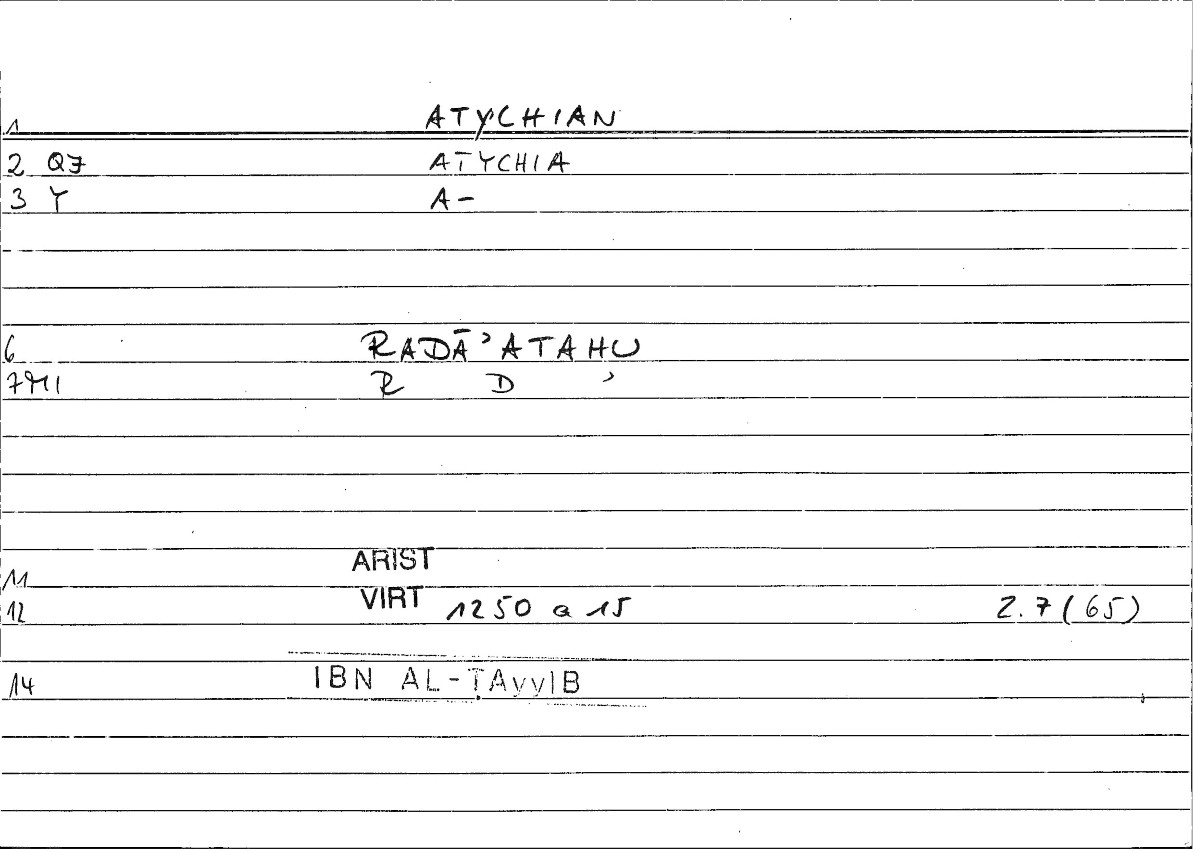 1 ATYCHIAN
2 Q7 ATYCHIA
3 Y A-
6 RADĀʾATAHU
7M1 R D ʾ
ARIST
11
12 VIRT 1250 a 15 2.7(65)
14 IBN AL-ṬAyyIB